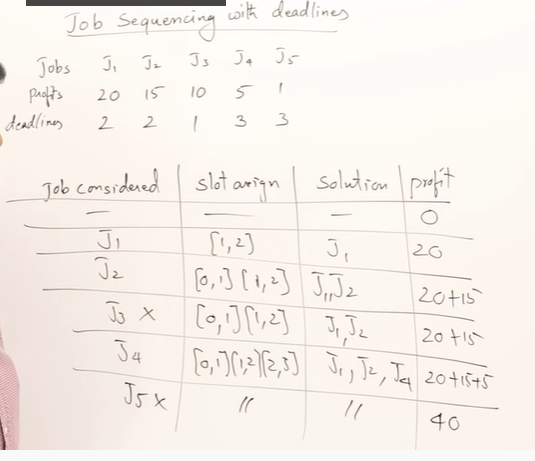 Job Sequencing with deadlines
Jobs J1 J2 J3 J4 J5
profits 20 15 10 5 1
deadlines 2 2 1 3 3
Job considered slot assign solution profit
— — — 0
J1 [1,2] J1 20
J2 [0,1] [1,2] J1, J2 20+15
J3 x [0,1] [1,2] J1, J2 20+15
J4 [0,1] [1,2] [2,3] J1, J2, J4 20+15+5
J5 x " " 40